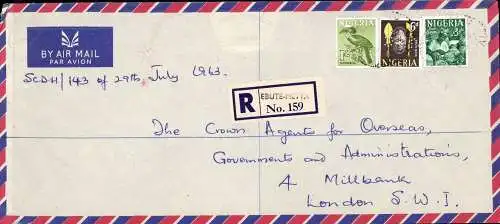 BY AIR MAIL
PAR AVION
NIGERIA
NIGERIA
NIGERIA
6d
3d
SCDH/143 of 29th July 1963.
R
EBUTE-METTA
No. 159
The Crown Agents for Overseas,
Governments and Administrations,
4 Millbank
London S.W.1.